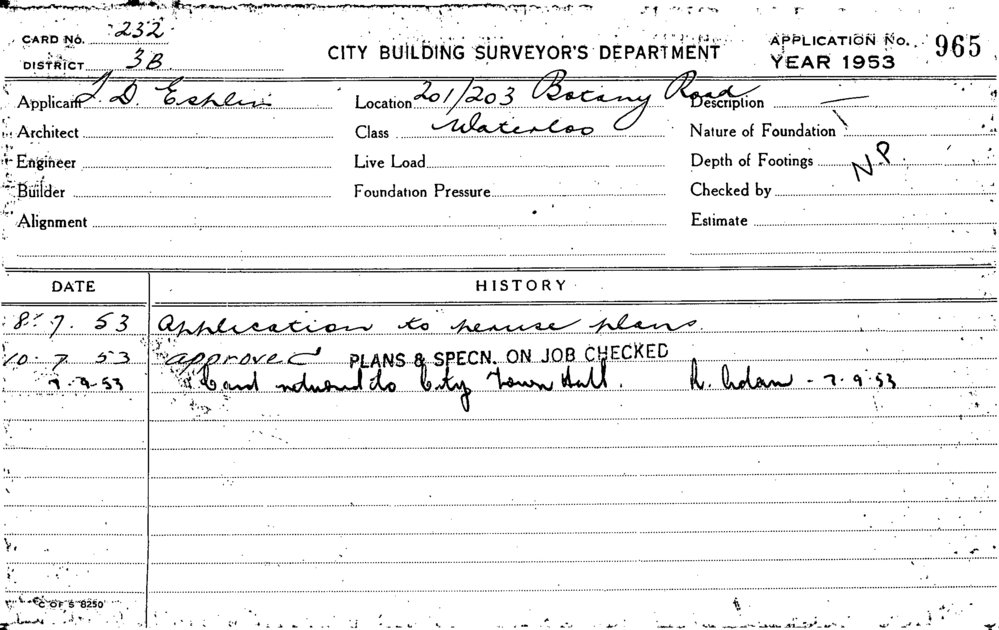 CARD No. 232
DISTRICT 3B
CITY BUILDING SURVEYOR'S DEPARTMENT
APPLICATION No. 965
YEAR 1953
Applicant D. Location 201/203 Botany Road Description —
Architect Class Waterloo Nature of Foundation
Engineer Live Load Depth of Footings NP
Builder Foundation Pressure Checked by
Alignment Estimate
DATE HISTORY
8.7.53 Application to peruse plans.
10.7.53 approved PLANS & SPECN. ON JOB CHECKED
7.9.53 Card returned to City Town Hall. - 7.9.53
C OF S 8250